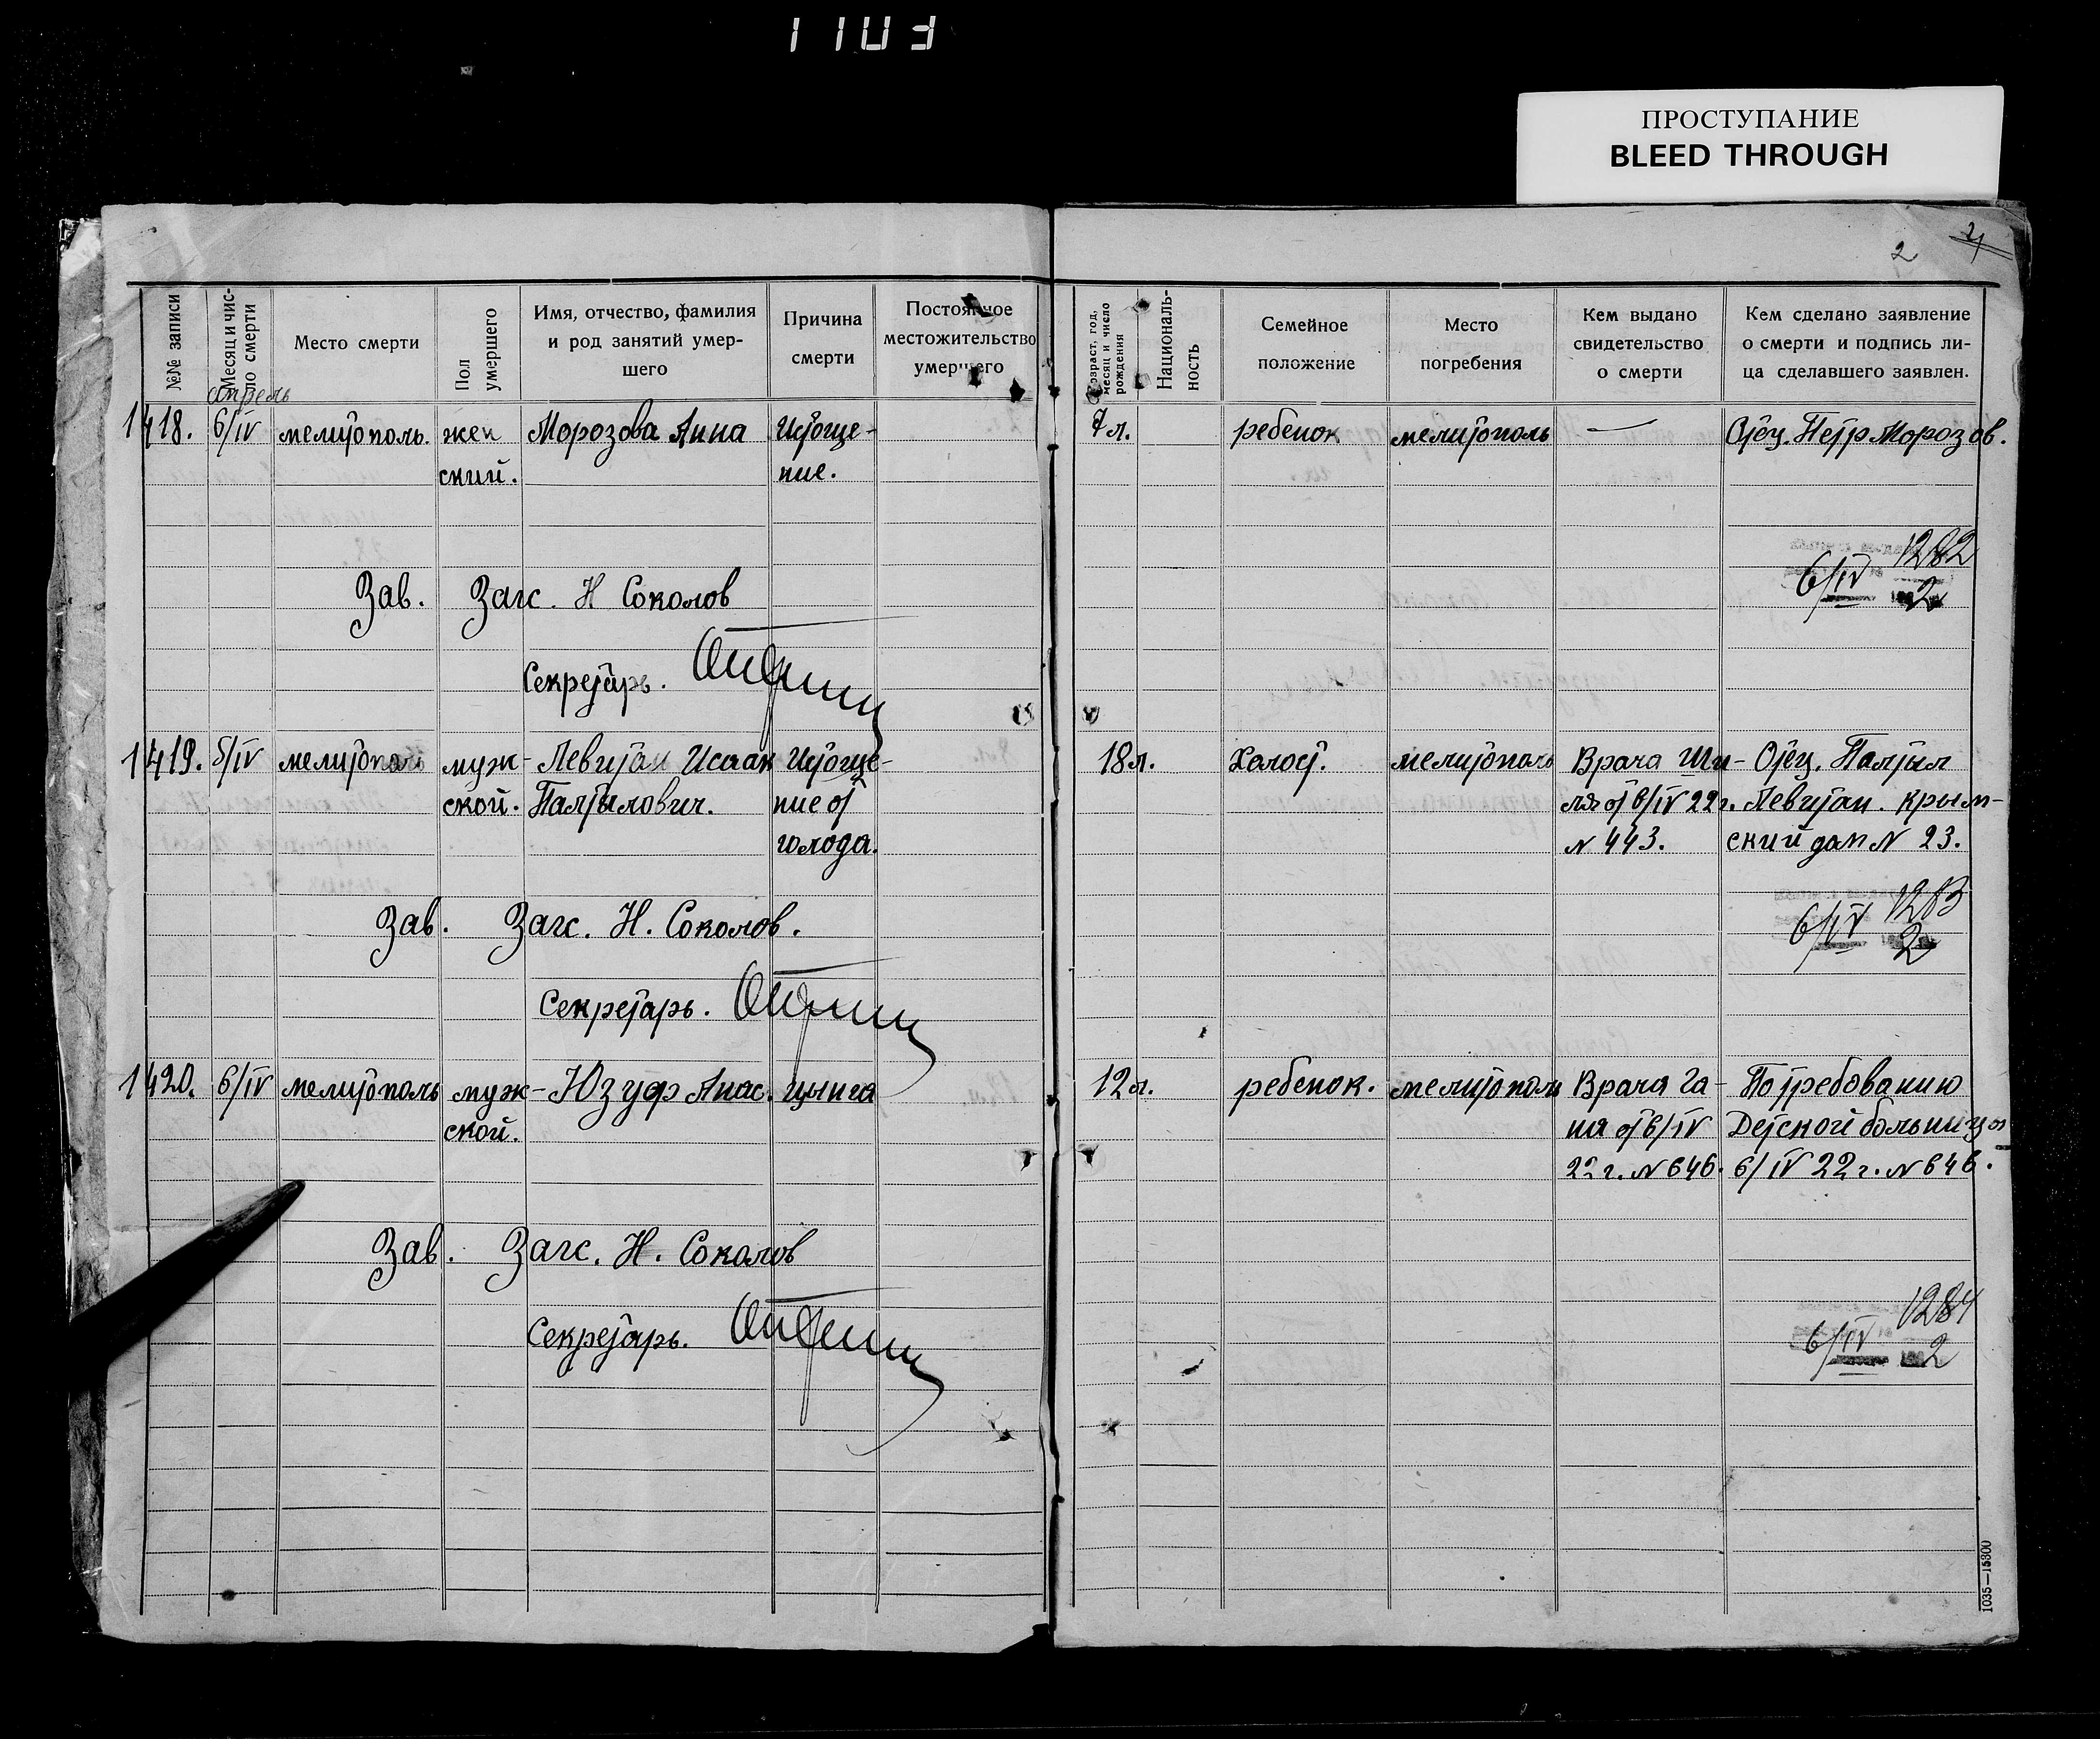 1103
ПРОСТУПАНИЕ
BLEED THROUGH
2
№№ записи
Месяц и чис-
ло смерти
Место смерти
Пол
умершего
Имя, отчество, фамилия
и род занятий умер-
шего
Причина
смерти
Постоянное
местожительство
умершего
Возраст, год,
месяц и число
рождения
Националь-
ность
Семейное
положение
Место
погребения
Кем выдано
свидетельство
о смерти
Кем сделано заявление
о смерти и подпись ли-
ца сделавшего заявлен.
апрель
1418. 6/IV мелитополь. жен Морозова Анна Истоще- 7 л. ребенок мелитополь — Отец. Петр Морозов.
ский. ние.
1282
6/IV 2
Зав. Загс. Н Соколов
Секретарь.
1419. 5/IV мелитополь муж- Левитан Исаак Истоще- 18 л. Холост. мелитополь Врача Ши- Отец. Палтыл
ской. Палтылович. ние от ля от 6/IV 22 г. Левитан. Крым-
голода. № 443. ский дом № 23.
1283
6/IV 2
Зав. Загс. Н. Соколов.
Секретарь.
1420. 6/IV мелитополь муж- Юзуф Анас. цынга 12 л. ребенок. мелитополь Врача Га- По требованию
ской. ня от 6/IV Детской больницы
22 г. № 646. 6/IV 22 г. № 646.
Зав. Загс. Н. Соколов
1284
6/IV 2
Секретарь.
1035—15300